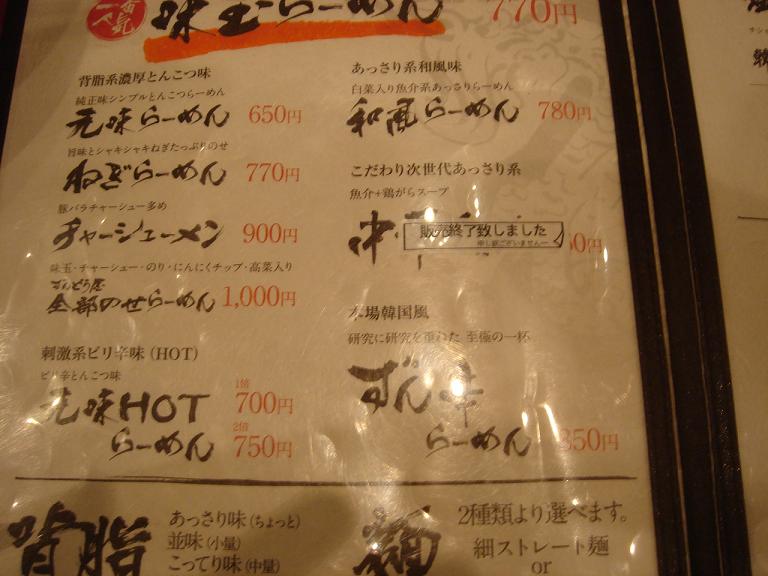 味玉らーめん 770円
背脂系濃厚とんこつ味
純正味シンプルとんこつらーめん
元味らーめん 650円
旨味とシャキシャキねぎたっぷりのせ
ねぎらーめん 770円
豚バラチャーシュー多め
チャーシューメン 900円
味玉・チャーシュー・のり・にんにくチップ・高菜入り
ずんどう屋
全部のせらーめん 1,000円
刺激系ピリ辛味(HOT)
ピリ辛とんこつ味
元味HOT 1倍 700円
らーめん 2倍 750円
あっさり系和風味
白菜入り魚介系あっさりらーめん
和風らーめん 780円
こだわり次世代あっさり系
魚介+鶏がらスープ
中
販売終了致しました
申し訳ございませんー
50円
本場韓国風
研究に研究を重ねた 至極の一杯
ずん辛
らーめん 850円
背脂
あっさり味(ちょっと)
並味(小量)
こってり味(中量)
麺
2種類より選べます。
細ストレート麺
or